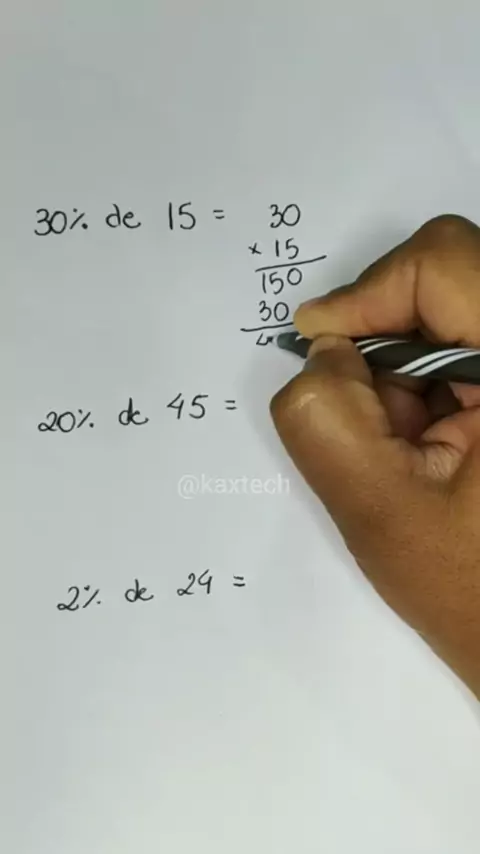 30% de 15 = 30
× 15
150
30
4
20% de 45 =
@kaxtech
2% de 24 =